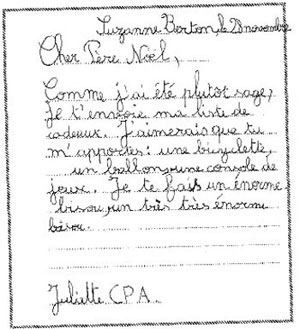 Suzanne Berton, le 28 novembre
Cher Père Noël,
Comme j'ai été plutot sage,
Je t'envoie ma liste de
cadeux. J'aimerais que tu
m'apportes: une bicyclette,
un ballon, une console de
jeux. Je te fais un énorme
bisou, un très très énorme
bisou.
Juliette C.P.A.